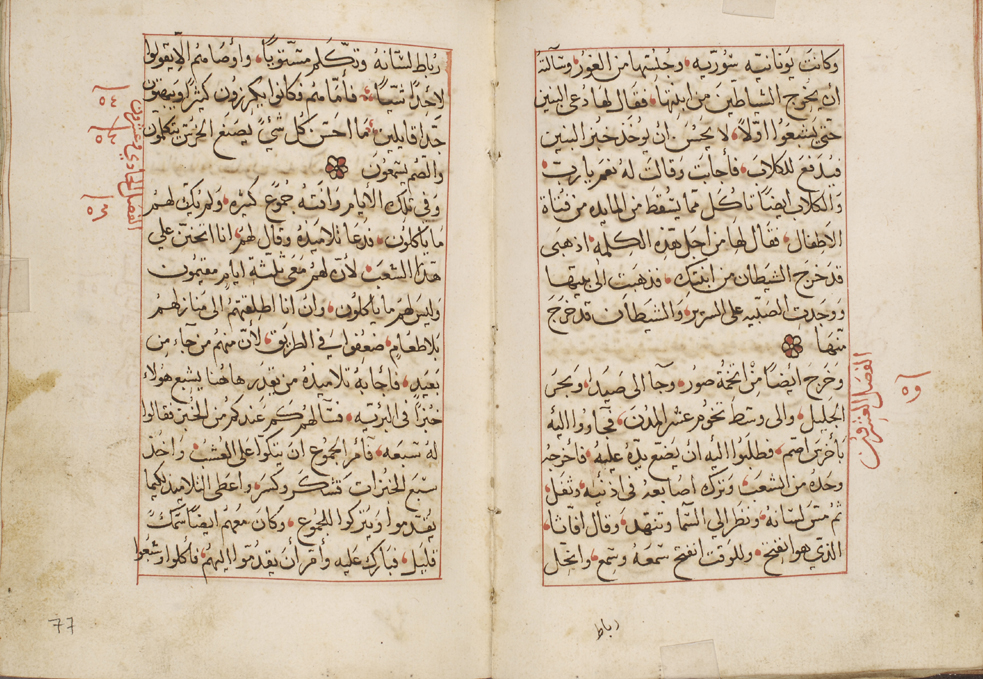 وكانت يونانيه سوريه وجلستها من الغور وسالته
ان يخرج الشاطين من ابنتها فقال لها دعي البنين
حتى يشبعوا اولا لا يحسن ان يوخد خبز البنين
فيدفع للكلاب فأجابت وقالت له نعم يا رب
والكلاب ايضا تاكل مما يسقط من المايده من فتاة
الاطفال فقال لها من اجل هذه الكلمه اذهبى
قد خرج الشيطان من ابنتك فذهبت الى بيتها
ووجدت الصبيه على السرير والشيطان قد خرج
منها
وخرج ايضا من تخمة صور وجا الى صيدا وبحر
الجليل والى وسط تخوم عشر المدن فجاووا اليه
بأخرس اصم وطلبوا اليه ان يضع يده عليه فاخرجه
وحده من الشعب وترك اصابعه فى اذنيه وتفل
ثم مس لسانه ونظر الي السما وتنهد وقال افاثا
الذي هو انفتح وللوقت انفتح سمعه وسمع وانحل
الفصل العشرون
رباط
رباط لسانه وتكلم مستويا واوصاهم الا يقولوا
لاحد شيا فأما هم فكانوا يكررون كثيرا ويبهتون
جدا قايلين ما احسن كل شي يصنع الخرس يتكلمون
والصم يسمعون
وفي تلك الايام وافته جموع كثيره ولم يكن لهم
ما ياكلون فدعا تلاميده وقال لهم انا اتحنن علي
هدا الشعب لان لهم معي ثلثة ايام مقيمون
وليس لهم ما ياكلون وان انا اطلقتهم الى منازلهم
بلا طعام ضعفوا في الطريق لان منهم من جاء من
بعيد فأجابه تلاميده من يقدر هاهنا يشبع هولاء
خبزا فى البريه فسالهم كم عندكم من الخبز فقالوا
له سبعه فأمر الجموع ان يتكوا على العشب واخد
سبع الخبزات فشكر وكسر واعطى التلاميد لكيما
يقدموا ويتركوا للجموع وكان معهم ايضا سمك
قليل فبارك عليه وأمر أن يقدموا اليهم فأكلوا وشبعوا
الفصل الحادي وعشرون
77